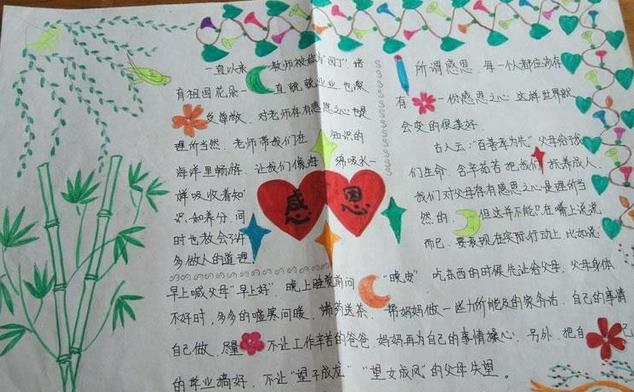 一直以来 教师被称"园丁"培
育祖国花朵一直兢兢业业也深
受尊敬。对老师存有感恩之心也是
理所当然。老师带我们在知识的
海洋里畅游,让我们像海绵吸水一
样吸收着知
识、如养分,同
时也教会了许
多做人的道理!
感恩
所谓感恩 每一个人都应该存
有一份感恩之心 这样世界就
会变的很美好.
古人云:"百善孝为先"父母给我
们生命.含辛茹苦把我们抚养成人.
我们对父母存有感恩之心是理所当
然的 但这并不能只在嘴上说说
而已.要表现在实际行动上 比如说
早上喊父母"早上好".晚上睡觉前问"晚安" 吃东西的时候先让给父母.父母身体
不好时,多多的嘘寒问暖.端药送茶.帮妈妈做一些力所能及的家务活.自己的事情
自己做.尽量 不让工作辛苦的爸爸妈妈再为自己的事情操心.另外.把自己
的学业搞好.不让"望子成龙""望女成凤"的父母失望。